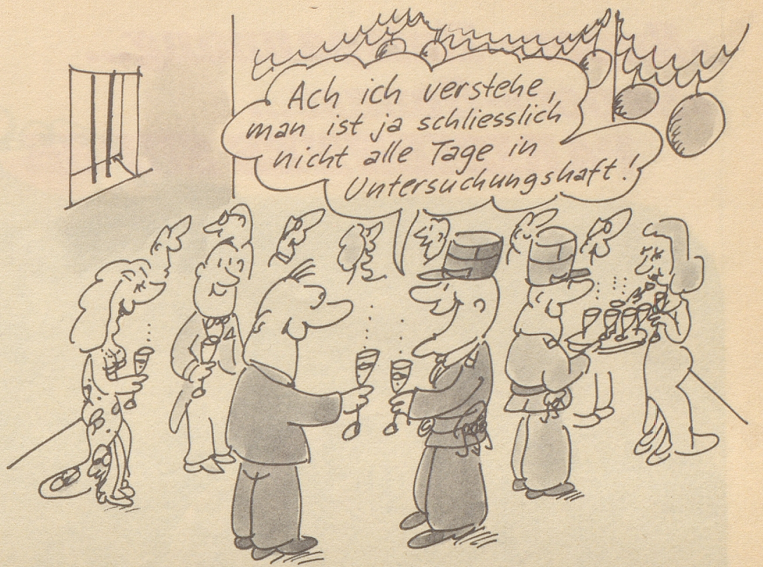 Ach ich verstehe,
man ist ja schliesslich
nicht alle Tage in
Untersuchungshaft!